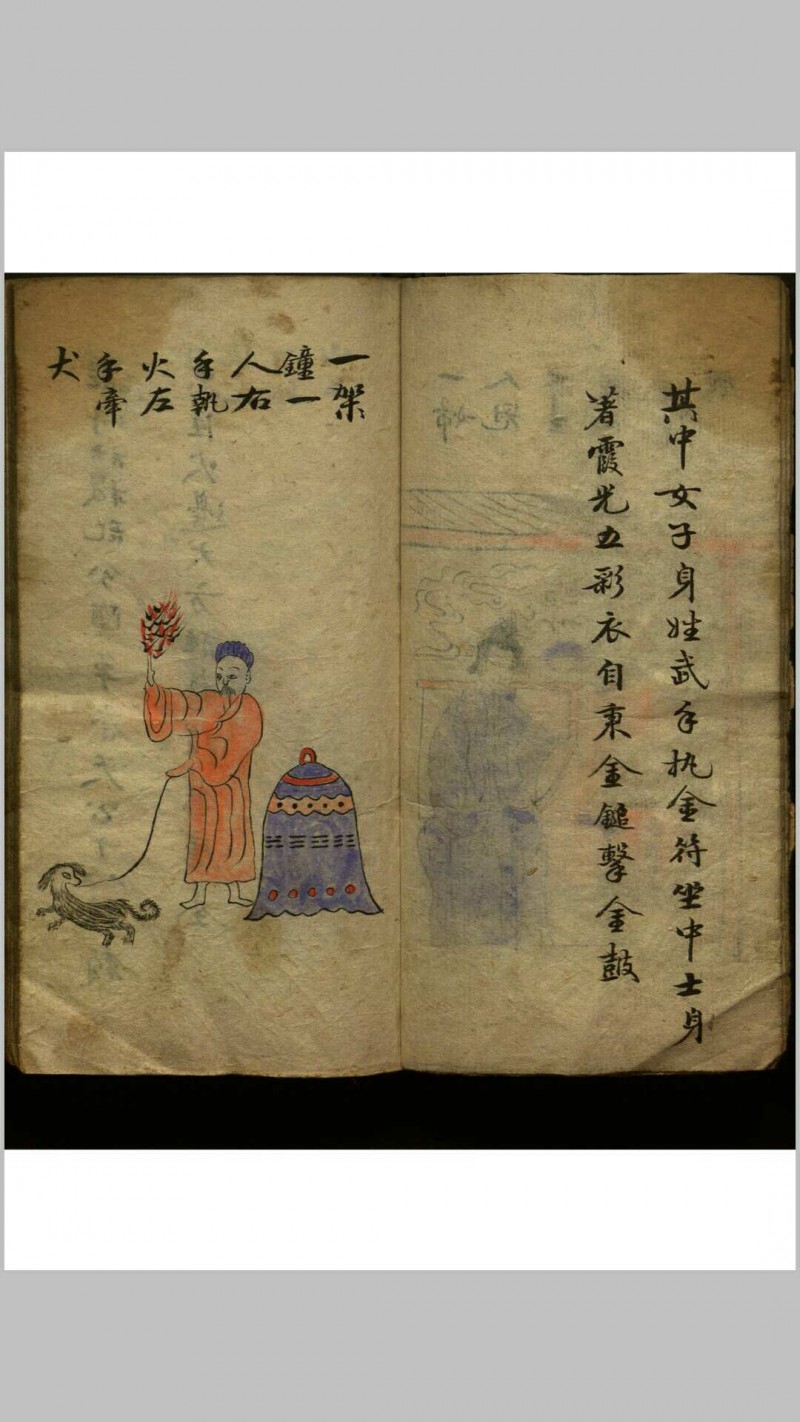 其中女子身姓武手执金符坐中士身
著霞光五彩衣自秉金鎚擊金鼓
一架
鐘一
人右
手執
火左
手牽
犬